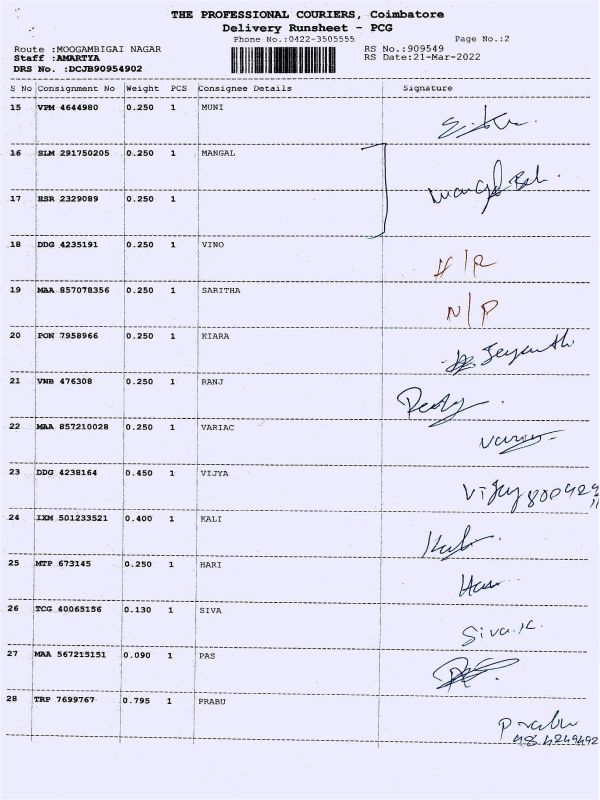 THE PROFESSIONAL COURIERS, Coimbatore
Delivery Runsheet - PCG
Phone No.:0422-3505555 Page No.:2
Route :MOOGAMBIGAI NAGAR RS No.:909549
Staff :AMARTYA RS Date:21-Mar-2022
DRS No. :DCJB90954902
S No Consignment No Weight PCS Consignee Details Signature
15 VPM 4644980 0.250 1 MUNI
16 SLM 291750205 0.250 1 MANGAL
17 HSR 2329089 0.250 1
18 DDG 4235191 0.250 1 VINO
19 MAA 857078356 0.250 1 SARITHA
N/P
20 PON 7958966 0.250 1 KIARA
21 VNB 476308 0.250 1 RANJ
22 MAA 857210028 0.250 1 VARIAC
23 DDG 4238164 0.450 1 VIJYA
24 IXM 501233521 0.400 1 KALI
25 MTP 673145 0.250 1 HARI
26 TCG 40065156 0.130 1 SIVA
Siva.K.
27 MAA 567215151 0.090 1 PAS
28 TRP 7699767 0.795 1 PRABU
Prabu